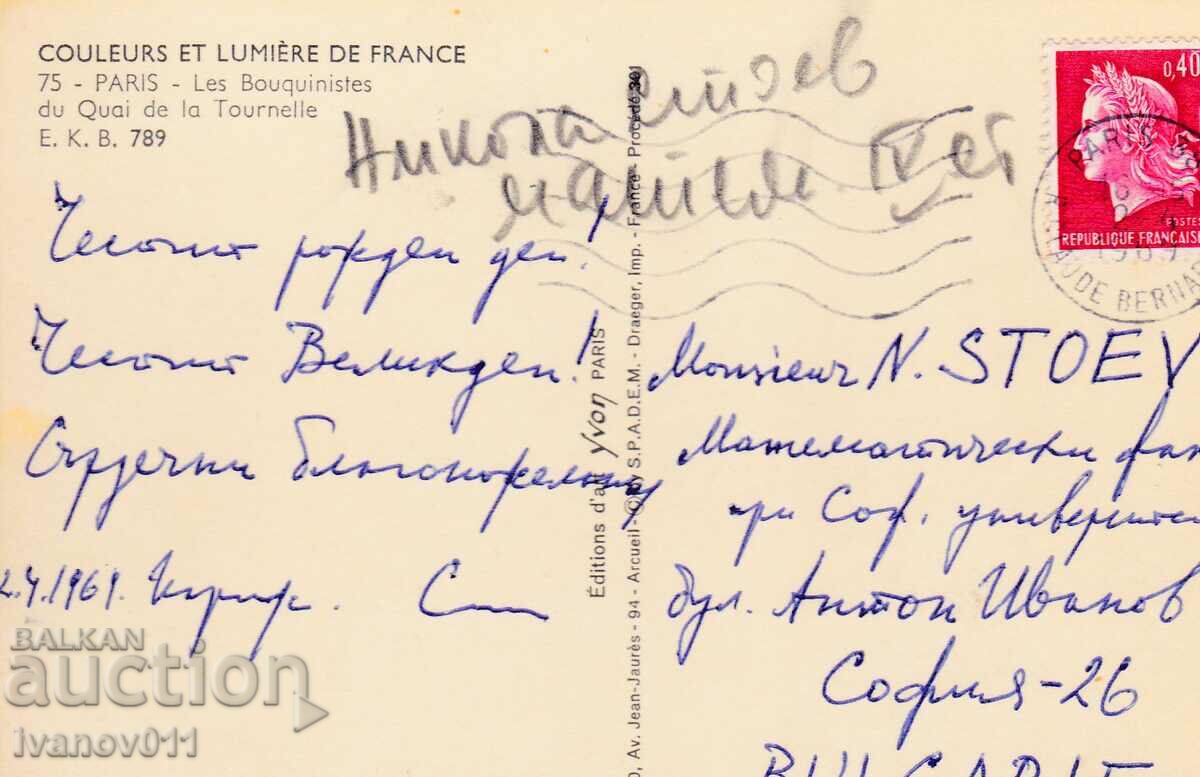 COULEURS ET LUMIÈRE DE FRANCE
75 - PARIS - Les Bouquinistes
du Quai de la Tournelle
E. K. B. 789
Никола Стоев
IV ет
0,40
POSTES
REPUBLIQUE FRANÇAISE
PARIS
1969
AUDE BERNA
Честит рожден ден!
Честит Великден!
Сърдечни благопожелания
2.4.1969. Париж.
Éditions d'art Yvon PARIS
0, Av. Jean-Jaurès - 94 - Arcueil - © by S.P.A.D.E.M. - Draeger, Imp. - France - Procédé 301
Monsieur N. STOEV
Математически фак
при Соф. университе
бул. Антон Иванов
София-26
BULGARIE
BALKAN
auction
ivanov011